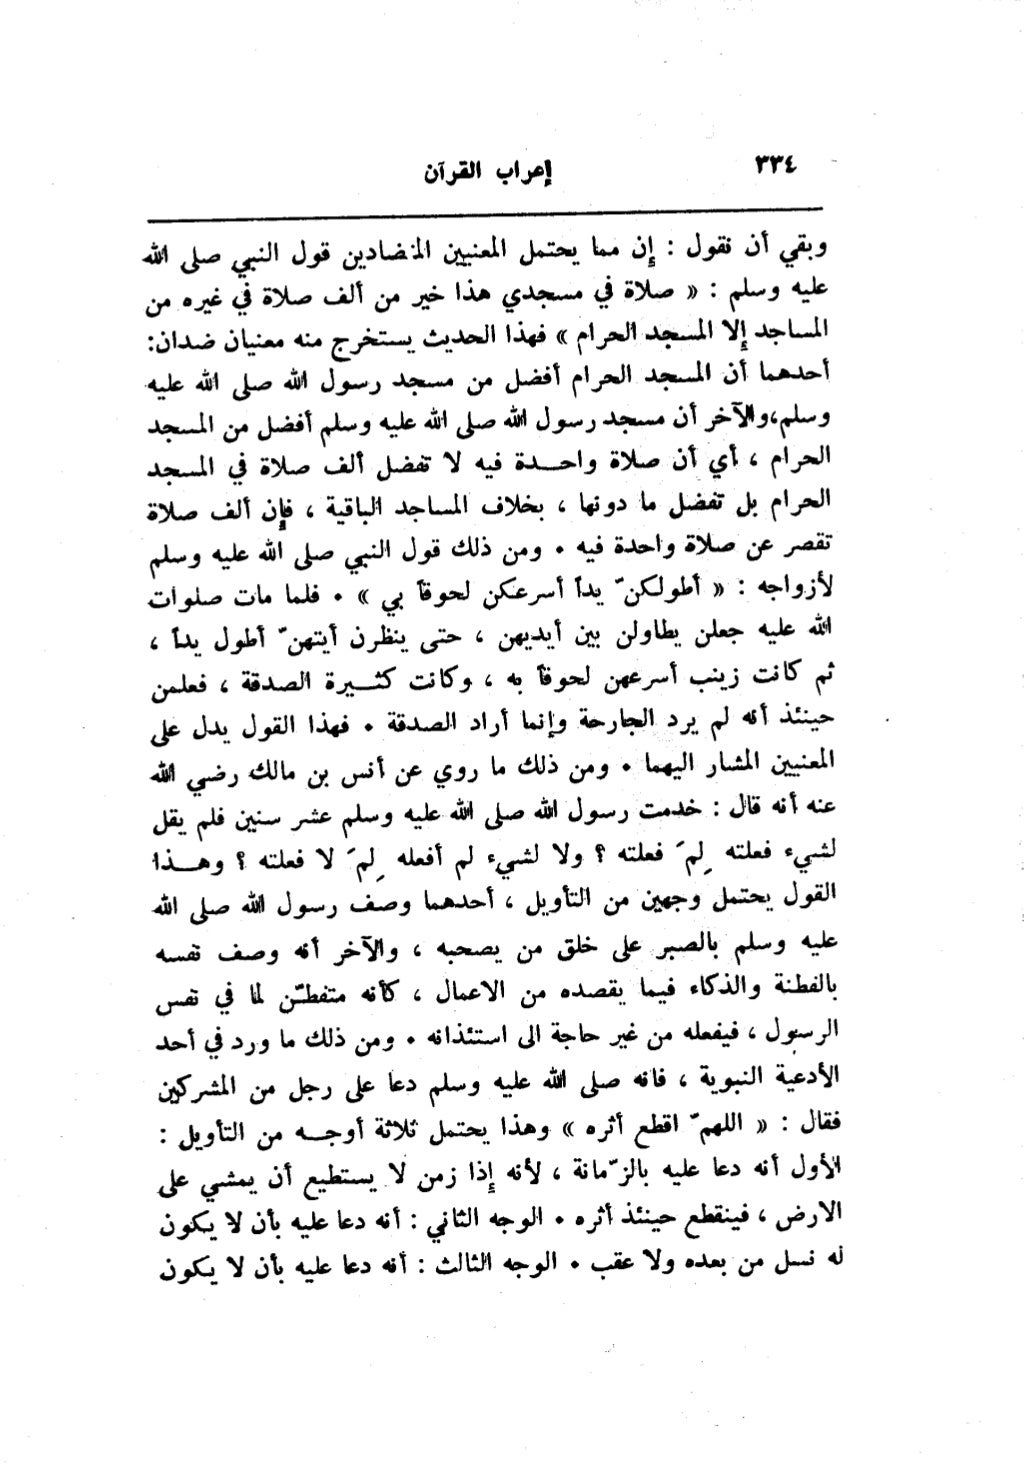 ٣٣٤
إعراب القرآن
وبقي أن نقول : إن مما يحتمل المعنيين المتضادين قول النبي صلى الله
عليه وسلم : « صلاة في مسجدي هذا خير من ألف صلاة في غيره من
المساجد إلا المسجد الحرام » فهذا الحديث يستخرج منه معنيان ضدان:
أحدهما أن المسجد الحرام أفضل من مسجد رسول الله صلى الله عليه
وسلم،والآخر أن مسجد رسول الله صلى الله عليه وسلم أفضل من المسجد
الحرام ، أي أن صلاة واحــدة فيه لا تفضل ألف صلاة في المسجد
الحرام بل تفضل ما دونها ، بخلاف المساجد الباقية ، فإن ألف صلاة
تقصر عن صلاة واحدة فيه . ومن ذلك قول النبي صلى الله عليه وسلم
لأزواجه : « أطولكنّ يداً أسرعكن لحوقاً بي » . فلما مات صلوات
الله عليه جعلن يطاولن بين أيديهن ، حتى ينظرن أيتهنّ أطول يداً ،
ثم كانت زينب أسرعهن لحوقاً به ، وكانت كثــيرة الصدقة ، فعلمن
حينئذ أنه لم يرد الجارحة وإنما أراد الصدقة . فهذا القول يدل على
المعنيين المشار اليهما . ومن ذلك ما روي عن أنس بن مالك رضي الله
عنه أنه قال : خدمت رسول الله صلى الله عليه وسلم عشر سنين فلم يقل
لشيء فعلته لِمَ فعلته ؟ ولا لشيء لم أفعله لِمَ لا فعلته ؟ وهــذا
القول يحتمل وجهين من التأويل ، أحدهما وصف رسول الله صلى الله
عليه وسلم بالصبر على خلق من يصحبه ، والآخر أنه وصف نفسه
بالفطنة والذكاء فيما يقصده من الاعمال ، كأنه متفطّن لما في نفس
الرسول ، فيفعله من غير حاجة الى استئذانه . ومن ذلك ما ورد في أحد
الأدعية النبوية ، فانه صلى الله عليه وسلم دعا على رجل من المشركين
فقال : « اللهمّ اقطع أثره » وهذا يحتمل ثلاثة أوجــه من التأويل :
الأول أنه دعا عليه بالزّمانة ، لأنه إذا زمن لا يستطيع أن يمشي على
الارض ، فينقطع حينئذ أثره . الوجه الثاني : أنه دعا عليه بأن لا يكون
له نسل من بعده ولا عقب . الوجه الثالث : أنه دعا عليه بأن لا يكون